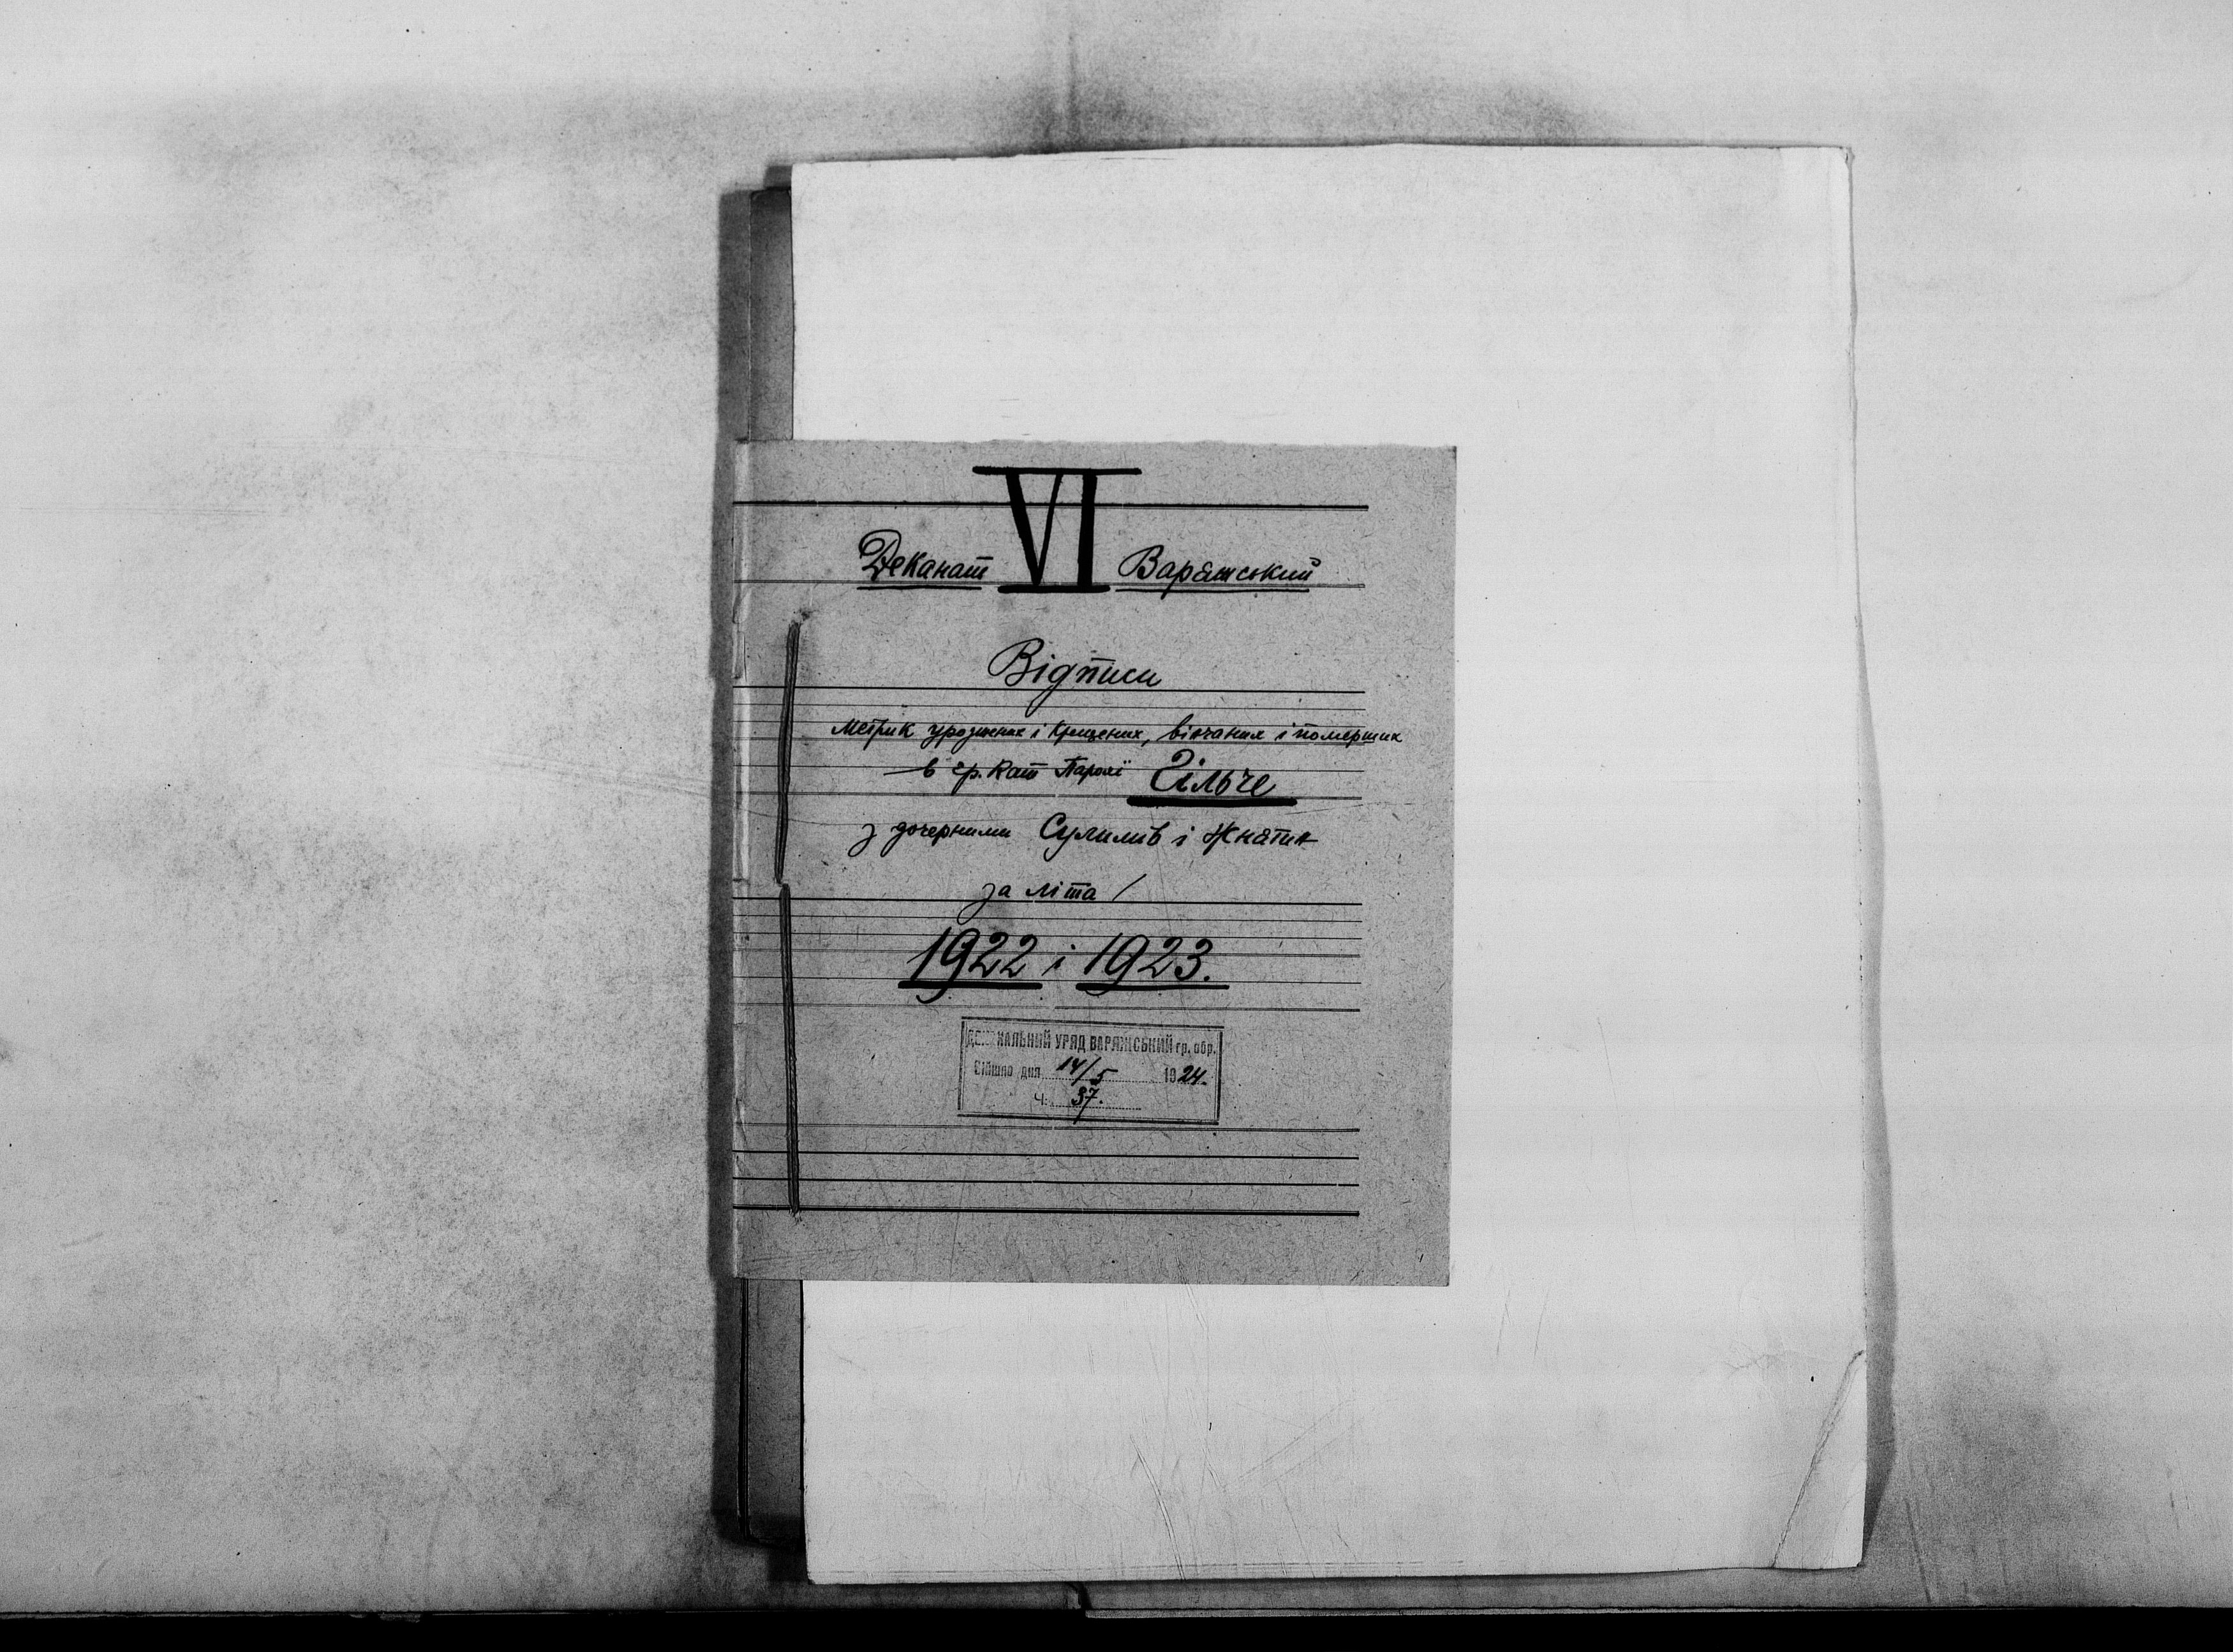 VI
Деканат Варяжський
Відписи
метрик урожених і крещених, вінчаних і померших
в гр. кат Парохії Гільче
з дочерними Сулимів і Жнятин
за літа /
1922 і 1923.
ДЕКАНАЛЬНИЙ УРЯД ВАРЯЖСЬКИЙ гр. обр.
Війшло дня 14/5 1924.
Ч: 37.